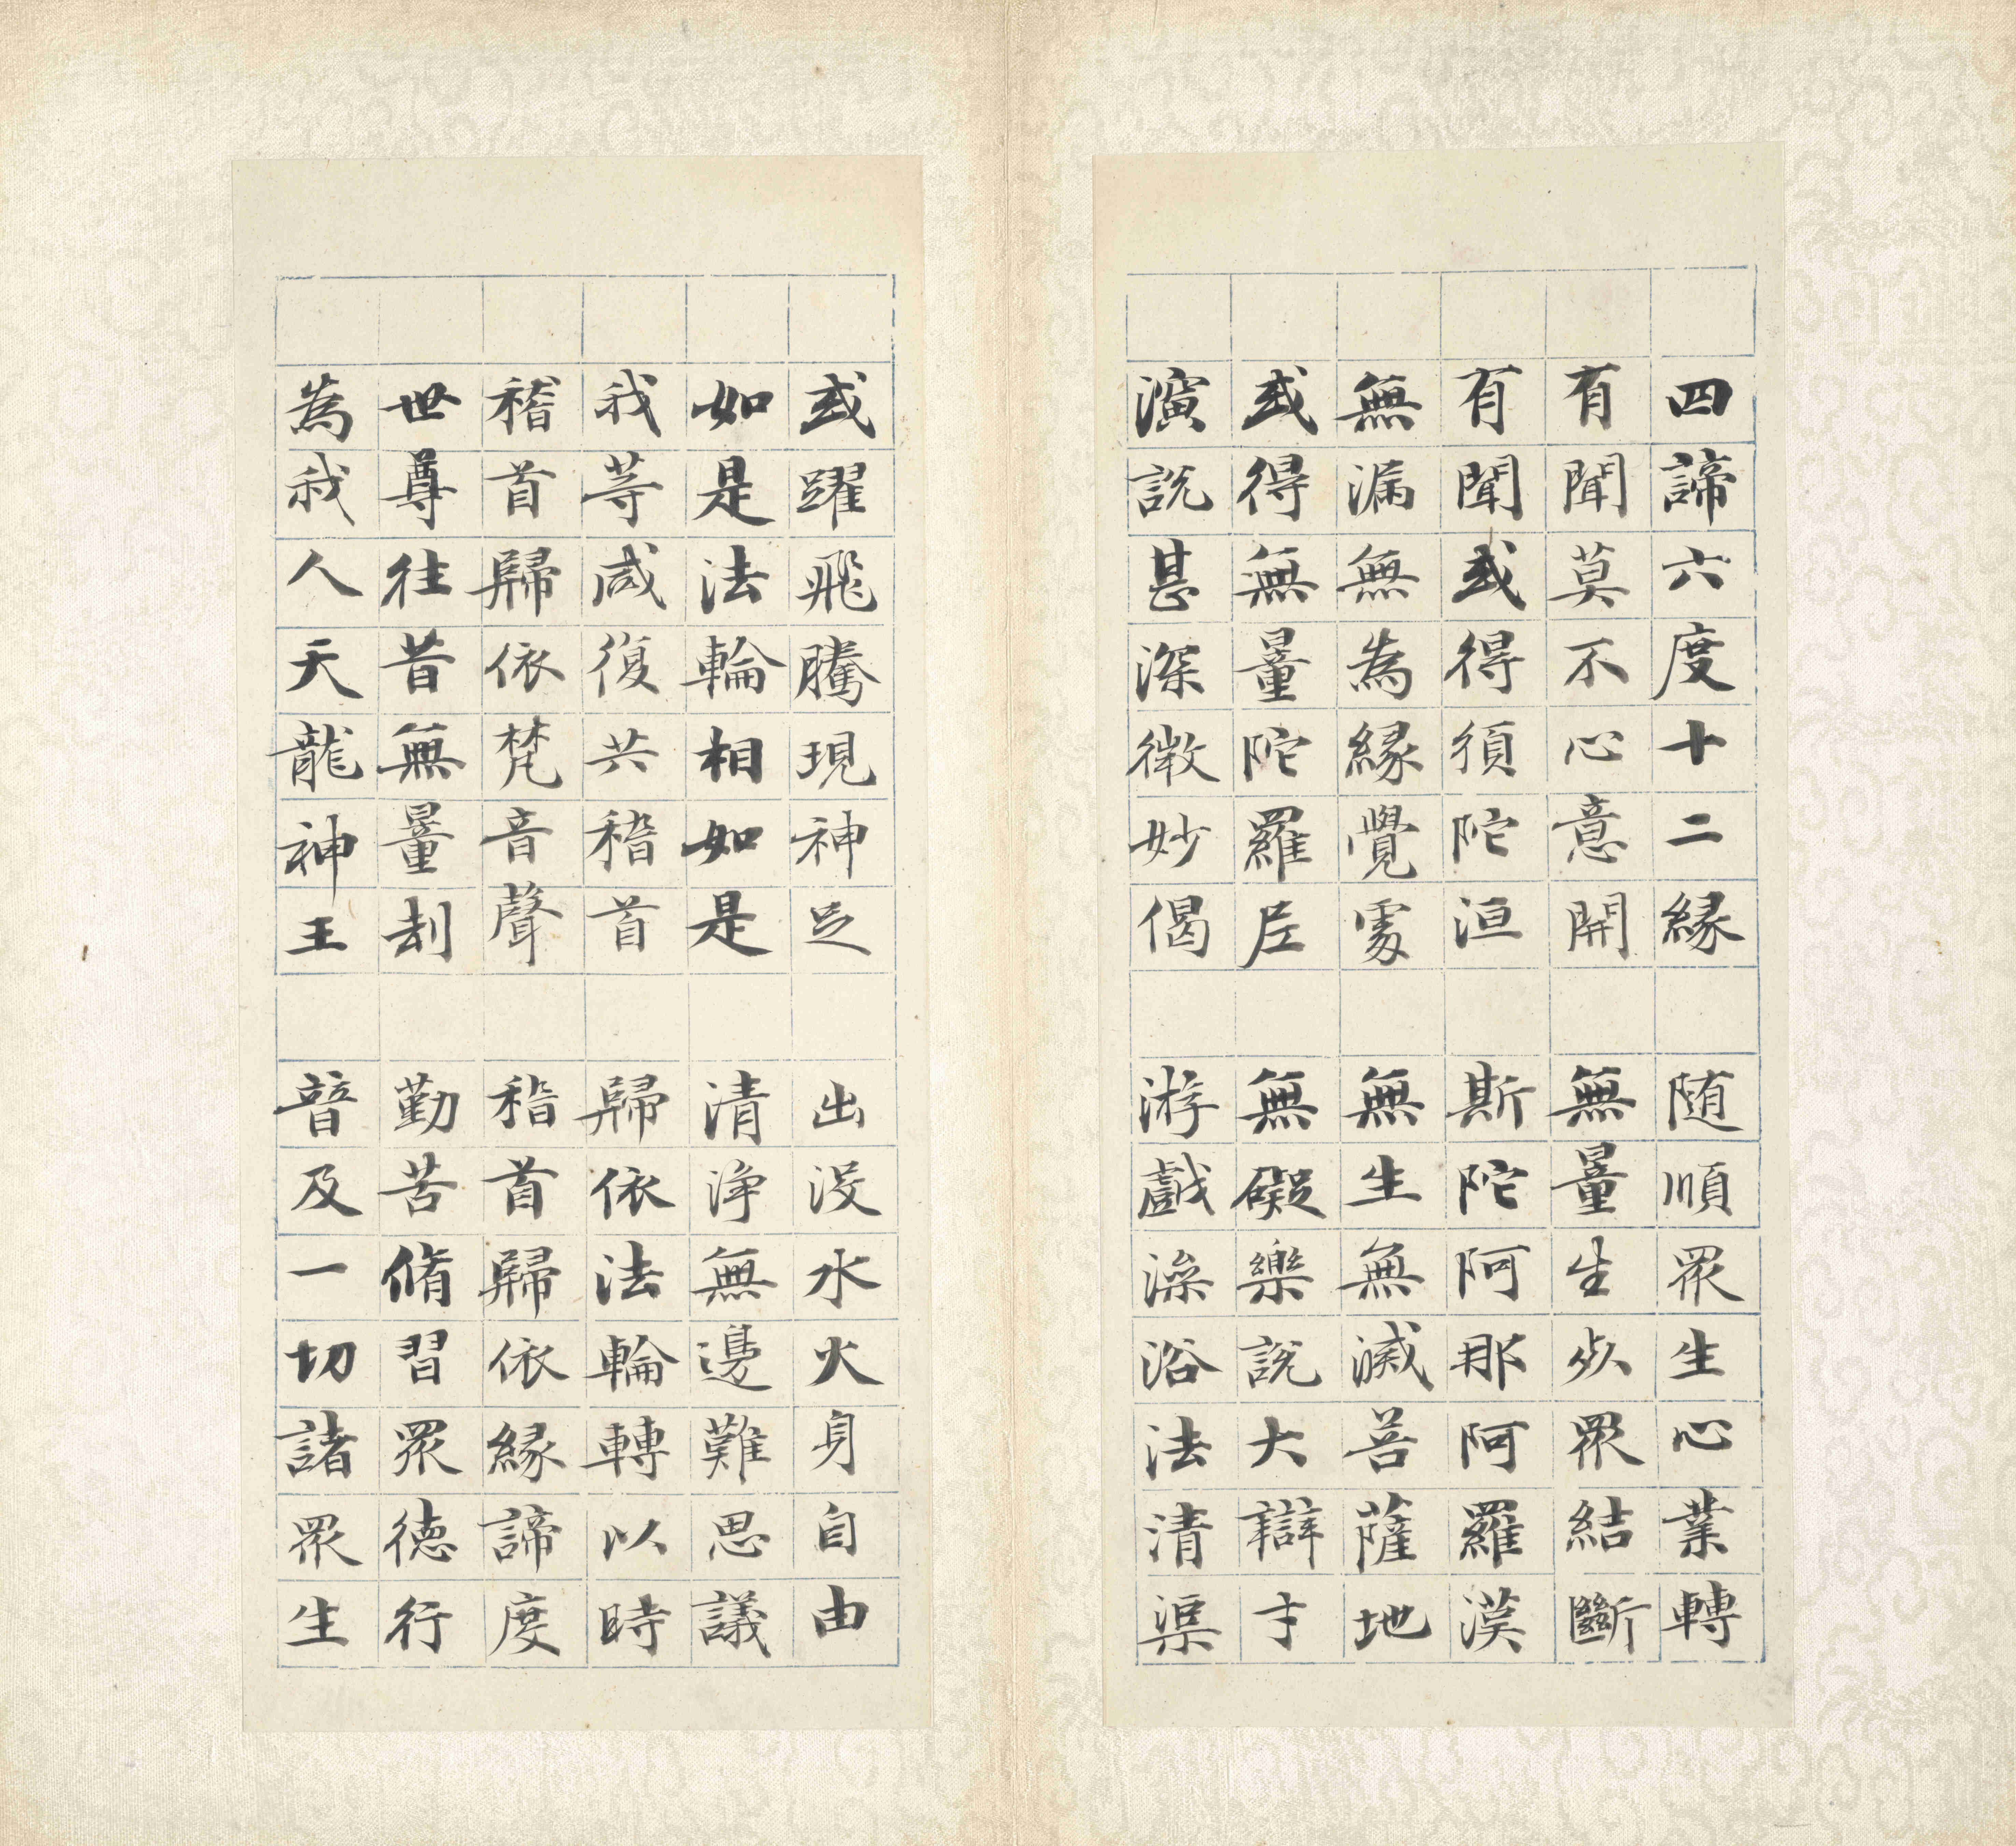 四諦六度十二緣　随順眾生心業轉
有聞莫不心意開　無量生死眾結斷
有聞或得須陀洹　斯陀阿那阿羅漢
無漏無為緣覺處　無生無滅菩薩地
或得無量陀羅尼　無礙樂說大辯才
演說甚深微妙偈　游戲澡浴法清渠
或躍飛騰現神足　出没水火身自由
如是法輪相如是　清淨無邊難思議
我等咸復共稽首　歸依法輪轉以時
稽首歸依梵音聲　稽首歸依緣諦度
世尊往昔無量劫　勤苦脩習眾德行
為我人天龍神王　普及一切諸眾生